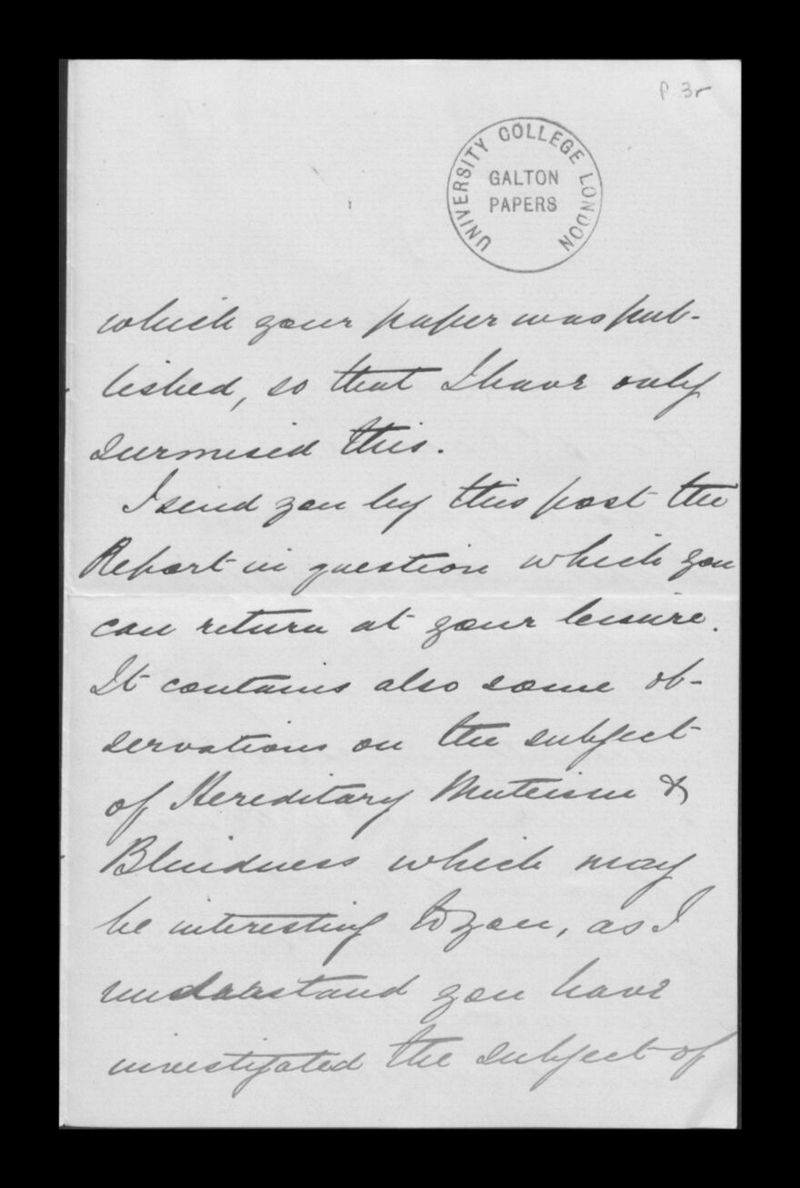 p. 3r
UNIVERSITY COLLEGE LONDON
GALTON
PAPERS
which your paper was pub-
lished, so that I have only
surmised this.
I send you by this post the
Report in question which you
can return at your leisure.
It contains also some ob-
servations on the subject
of Hereditary Muteism &
Blindness which may
be interesting to you, as I
understand you have
investigated the subject of